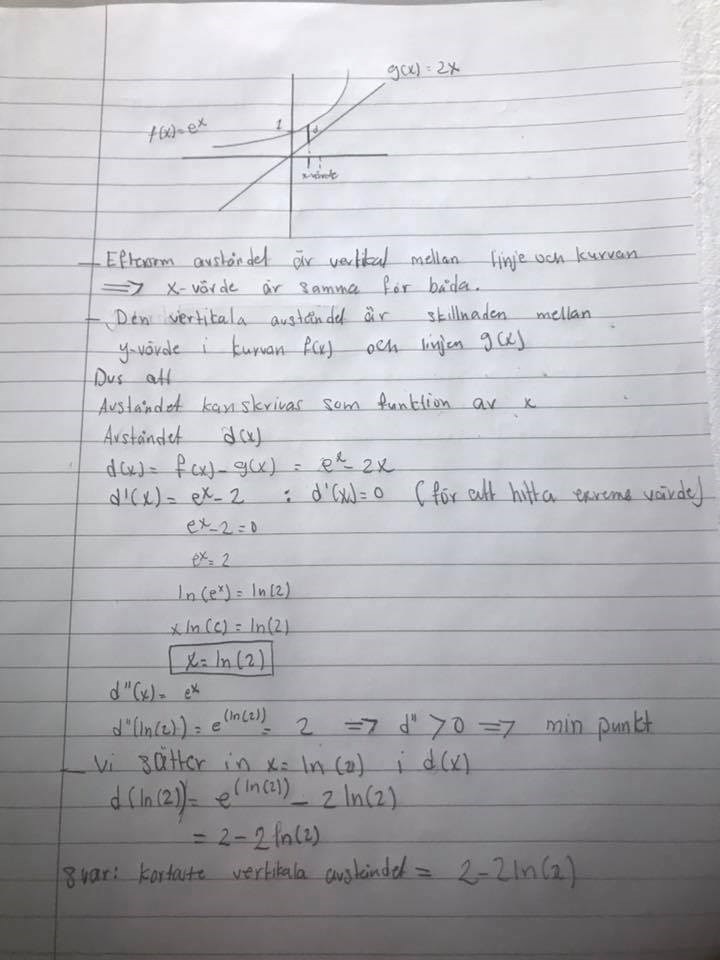 g(x) = 2x
f(x)=e^x
1
d
x-värde
- Eftersom avståndet är vertikal mellan linje och kurvan
⟹ x-värde är samma för båda.
- Den vertikala avståndet är skillnaden mellan
y-värde i kurvan f(x) och linjen g(x)
Dvs att
Avståndet kan skrivas som funktion av x
Avståndet d(x)
d(x) = f(x) - g(x) = e^x - 2x
d'(x) = e^x - 2 : d'(x)=0 (för att hitta extreme värde)
e^x - 2 = 0
e^x = 2
ln(e^x) = ln(2)
x ln(e) = ln(2)
x = ln(2)
d''(x) = e^x
d''(ln(2)) = e^(ln(2)) = 2 ⟹ d'' > 0 ⟹ min punkt
- Vi sätter in x = ln(2) i d(x)
d(ln(2)) = e^(ln(2)) - 2 ln(2)
= 2 - 2 ln(2)
Svar: kortaste vertikala avståndet = 2 - 2 ln(2)